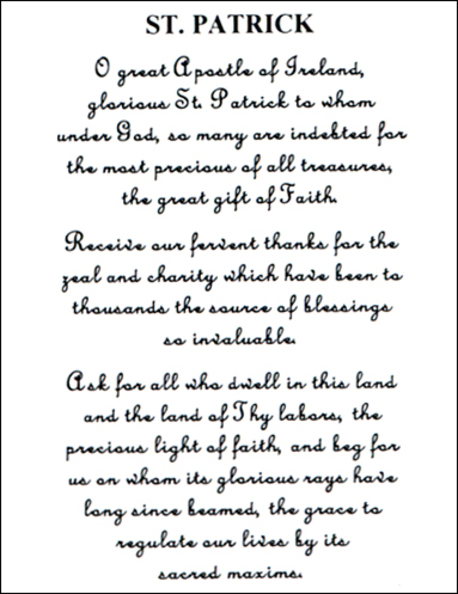 ST. PATRICK
O great Apostle of Ireland,
glorious St. Patrick to whom
under God, so many are indebted for
the most precious of all treasures,
the great gift of Faith.
Receive our fervent thanks for the
zeal and charity which have been to
thousands the source of blessings
so invaluable.
Ask for all who dwell in this land
and the land of Thy labors, the
precious light of faith, and beg for
us on whom its glorious rays have
long since beamed, the grace to
regulate our lives by its
sacred maxims.